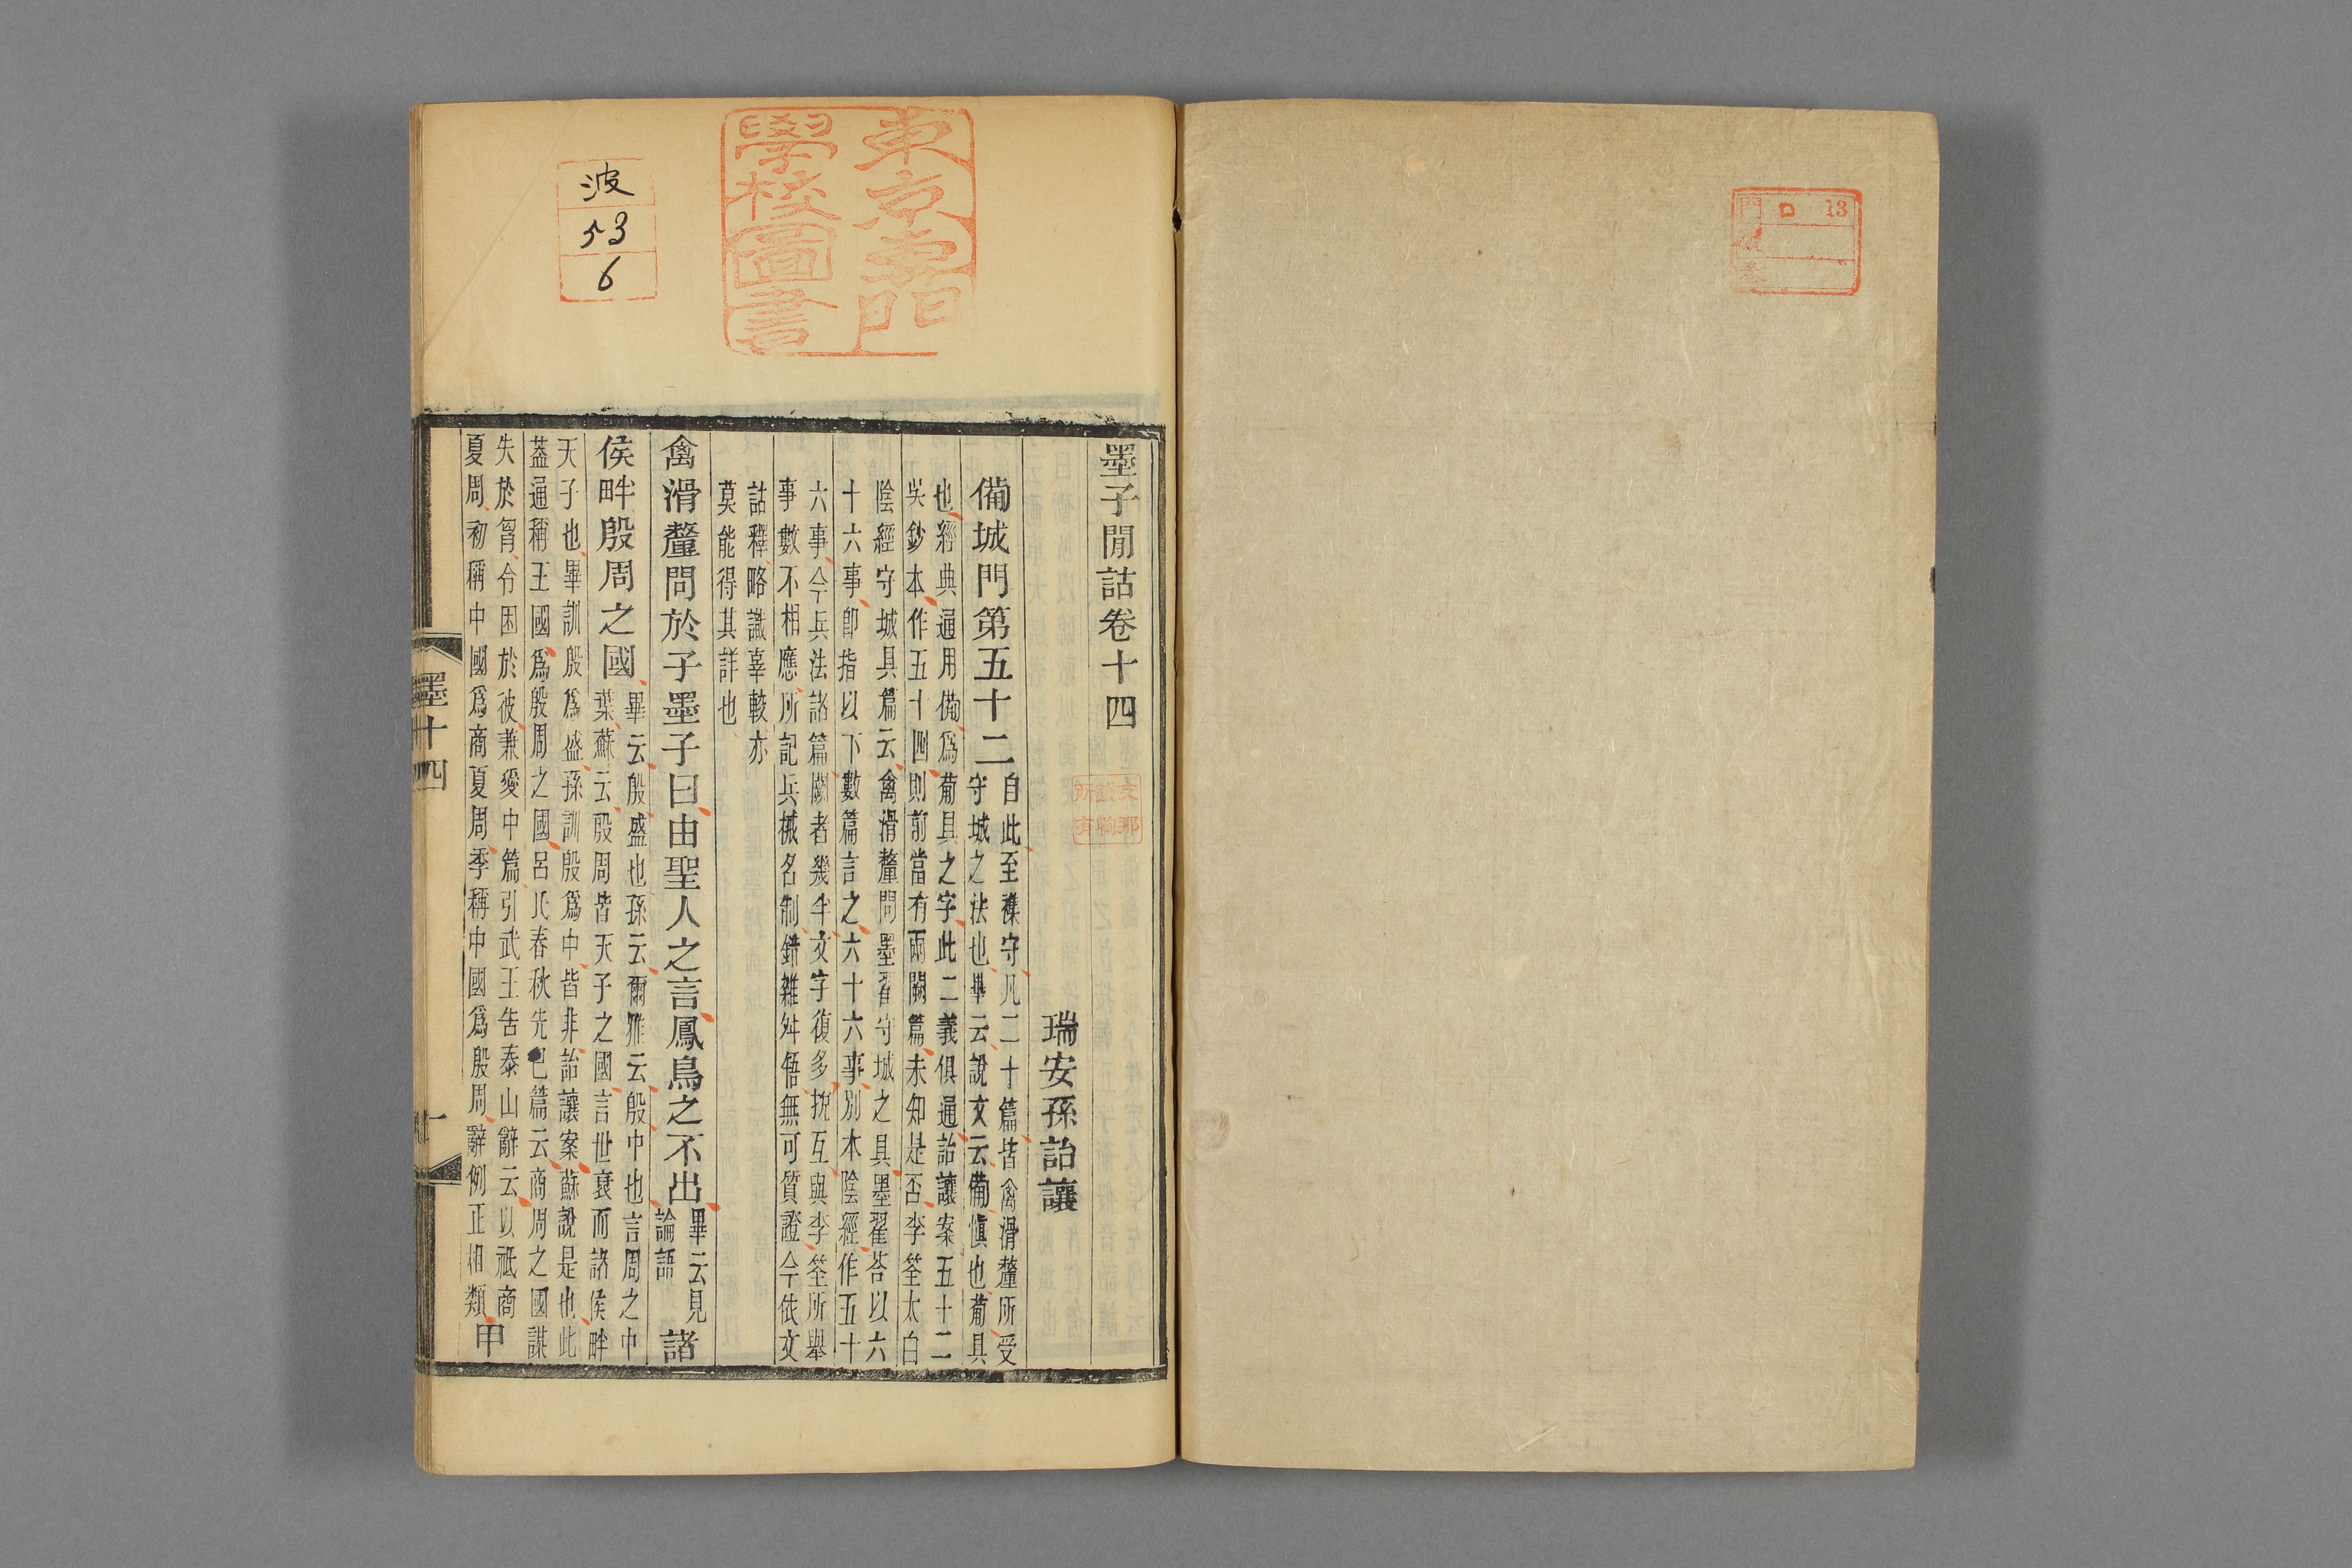 門 ロ 13
號
東京專門
學校圖書
波
53
6
墨子閒詁卷十四
瑞安孫詒讓
備城門第五十二
自此至襍守凡二十篇皆禽滑釐所受
守城之法也畢云說文云備愼也葡具
也經典通用備爲葡具之字此二義俱通詒讓案五十二
吳鈔本作五十四則前當有兩闕篇未知是否李筌太白
陰經守城具篇云禽滑釐問墨翟守城之具墨翟荅以六
十六事卽指以下數篇言之六十六事別本陰經作五十
六事今兵法諸篇闕者幾半文字復多挩互與李筌所舉
事數不相應所記兵械名制錯雜舛啎無可質證今依文
詁釋略識辜較亦
莫能得其詳也
禽滑釐問於子墨子曰由聖人之言鳳鳥之不出
畢云見
論語
諸
侯畔殷周之國
畢云殷盛也孫云爾雅云殷中也言周之中
葉蘇云殷周皆天子之國言世衰而諸侯畔
天子也畢訓殷爲盛孫訓殷爲中皆非詒讓案蘇說是也此
葢通稱王國爲殷周之國呂氏春秋先己篇云商周之國謀
失於胷令困於彼兼愛中篇引武王告泰山辭云以祗商
夏周初稱中國爲商夏周季稱中國爲殷周辭例正相類
甲
墨十四
一